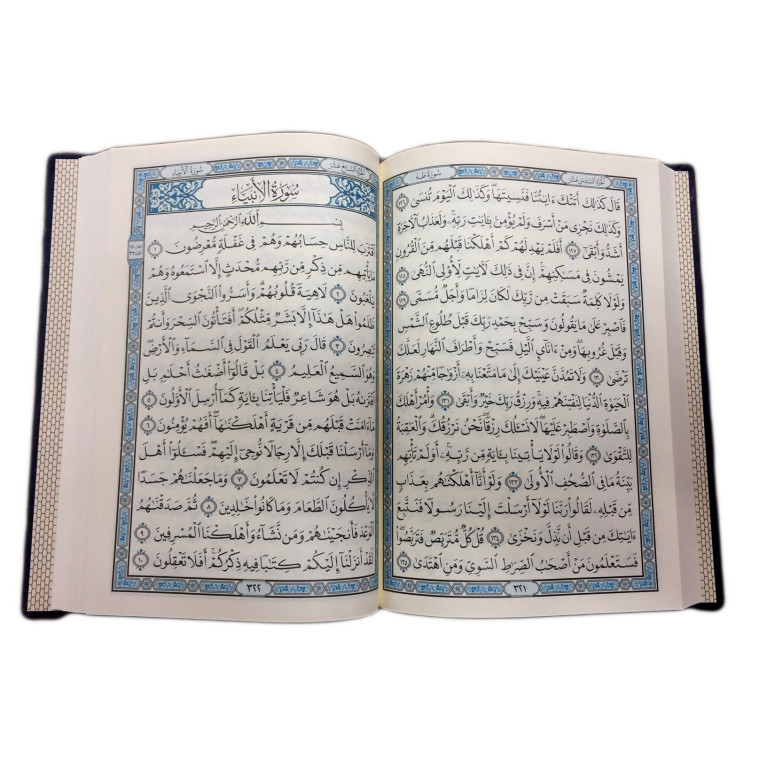 سُورَةُ طه
الجُزْءُ السَّادِسَ عَشَرَ
قَالَ كَذَٰلِكَ أَتَتْكَ ءَايَٰتُنَا فَنَسِيتَهَا ۖ وَكَذَٰلِكَ ٱلْيَوْمَ تُنسَىٰ ١٢٦
وَكَذَٰلِكَ نَجْزِى مَنْ أَسْرَفَ وَلَمْ يُؤْمِنۢ بِـَٔايَٰتِ رَبِّهِۦ ۚ وَلَعَذَابُ ٱلْءَاخِرَةِ
أَشَدُّ وَأَبْقَىٰٓ ١٢٧ أَفَلَمْ يَهْدِ لَهُمْ كَمْ أَهْلَكْنَا قَبْلَهُم مِّنَ ٱلْقُرُونِ
يَمْشُونَ فِى مَسَٰكِنِهِمْ ۗ إِنَّ فِى ذَٰلِكَ لَءَايَٰتٍ لِّأُو۟لِى ٱلنُّهَىٰ ١٢٨
وَلَوْلَا كَلِمَةٌ سَبَقَتْ مِن رَّبِّكَ لَكَانَ لِزَامًا وَأَجَلٌ مُّسَمًّى ١٢٩
فَٱصْبِرْ عَلَىٰ مَا يَقُولُونَ وَسَبِّحْ بِحَمْدِ رَبِّكَ قَبْلَ طُلُوعِ ٱلشَّمْسِ
وَقَبْلَ غُرُوبِهَا ۖ وَمِنْ ءَانَآئِ ٱلَّيْلِ فَسَبِّحْ وَأَطْرَافَ ٱلنَّهَارِ لَعَلَّكَ
تَرْضَىٰ ١٣٠ وَلَا تَمُدَّنَّ عَيْنَيْكَ إِلَىٰ مَا مَتَّعْنَا بِهِۦٓ أَزْوَٰجًا مِّنْهُمْ زَهْرَةَ
ٱلْحَيَوٰةِ ٱلدُّنْيَا لِنَفْتِنَهُمْ فِيهِ ۚ وَرِزْقُ رَبِّكَ خَيْرٌ وَأَبْقَىٰ ١٣١ وَأْمُرْ أَهْلَكَ
بِٱلصَّلَوٰةِ وَٱصْطَبِرْ عَلَيْهَا ۖ لَا نَسْـَٔلُكَ رِزْقًا ۖ نَّحْنُ نَرْزُقُكَ ۗ وَٱلْعَٰقِبَةُ
لِلتَّقْوَىٰ ١٣٢ وَقَالُوا۟ لَوْلَا يَأْتِينَا بِـَٔايَةٍ مِّن رَّبِّهِۦٓ ۚ أَوَلَمْ تَأْتِهِم
بَيِّنَةُ مَا فِى ٱلصُّحُفِ ٱلْأُولَىٰ ١٣٣ وَلَوْ أَنَّآ أَهْلَكْنَٰهُم بِعَذَابٍ
مِّن قَبْلِهِۦ لَقَالُوا۟ رَبَّنَا لَوْلَآ أَرْسَلْتَ إِلَيْنَا رَسُولًا فَنَتَّبِعَ
ءَايَٰتِكَ مِن قَبْلِ أَن نَّذِلَّ وَنَخْزَىٰ ١٣٤ قُلْ كُلٌّ مُّتَرَبِّصٌ فَتَرَبَّصُوا۟ ۖ
فَسَتَعْلَمُونَ مَنْ أَصْحَٰبُ ٱلصِّرَٰطِ ٱلسَّوِىِّ وَمَنِ ٱهْتَدَىٰ ١٣٥
٣٢١
الجُزْءُ السَّابِعَ عَشَرَ
سُورَةُ الأَنبيَاء
سُورَةُ الأَنبيَاءِ
بِسْمِ ٱللَّهِ ٱلرَّحْمَٰنِ ٱلرَّحِيمِ
ٱقْتَرَبَ لِلنَّاسِ حِسَابُهُمْ وَهُمْ فِى غَفْلَةٍ مُّعْرِضُونَ ١
مَا يَأْتِيهِم مِّن ذِكْرٍ مِّن رَّبِّهِم مُّحْدَثٍ إِلَّا ٱسْتَمَعُوهُ وَهُمْ
يَلْعَبُونَ ٢ لَاهِيَةً قُلُوبُهُمْ ۗ وَأَسَرُّوا۟ ٱلنَّجْوَى ٱلَّذِينَ
ظَلَمُوا۟ هَلْ هَٰذَآ إِلَّا بَشَرٌ مِّثْلُكُمْ ۖ أَفَتَأْتُونَ ٱلسِّحْرَ وَأَنتُمْ
تُبْصِرُونَ ٣ قَالَ رَبِّى يَعْلَمُ ٱلْقَوْلَ فِى ٱلسَّمَآءِ وَٱلْأَرْضِ ۖ
وَهُوَ ٱلسَّمِيعُ ٱلْعَلِيمُ ٤ بَلْ قَالُوٓا۟ أَضْغَٰثُ أَحْلَٰمٍۭ بَلِ
ٱفْتَرَىٰهُ بَلْ هُوَ شَاعِرٌ فَلْيَأْتِنَا بِـَٔايَةٍ كَمَآ أُرْسِلَ ٱلْأَوَّلُونَ ٥
مَآ ءَامَنَتْ قَبْلَهُم مِّن قَرْيَةٍ أَهْلَكْنَٰهَآ ۖ أَفَهُمْ يُؤْمِنُونَ ٦
وَمَآ أَرْسَلْنَا قَبْلَكَ إِلَّا رِجَالًا نُّوحِىٓ إِلَيْهِمْ ۖ فَسْـَٔلُوٓا۟ أَهْلَ
ٱلذِّكْرِ إِن كُنتُمْ لَا تَعْلَمُونَ ٧ وَمَا جَعَلْنَٰهُمْ جَسَدًا
لَّا يَأْكُلُونَ ٱلطَّعَامَ وَمَا كَانُوا۟ خَٰلِدِينَ ٨ ثُمَّ صَدَقْنَٰهُمُ
ٱلْوَعْدَ فَأَنجَيْنَٰهُمْ وَمَن نَّشَآءُ وَأَهْلَكْنَا ٱلْمُسْرِفِينَ ٩
لَقَدْ أَنزَلْنَآ إِلَيْكُمْ كِتَٰبًا فِيهِ ذِكْرُكُمْ ۖ أَفَلَا تَعْقِلُونَ ١٠
٣٢٢